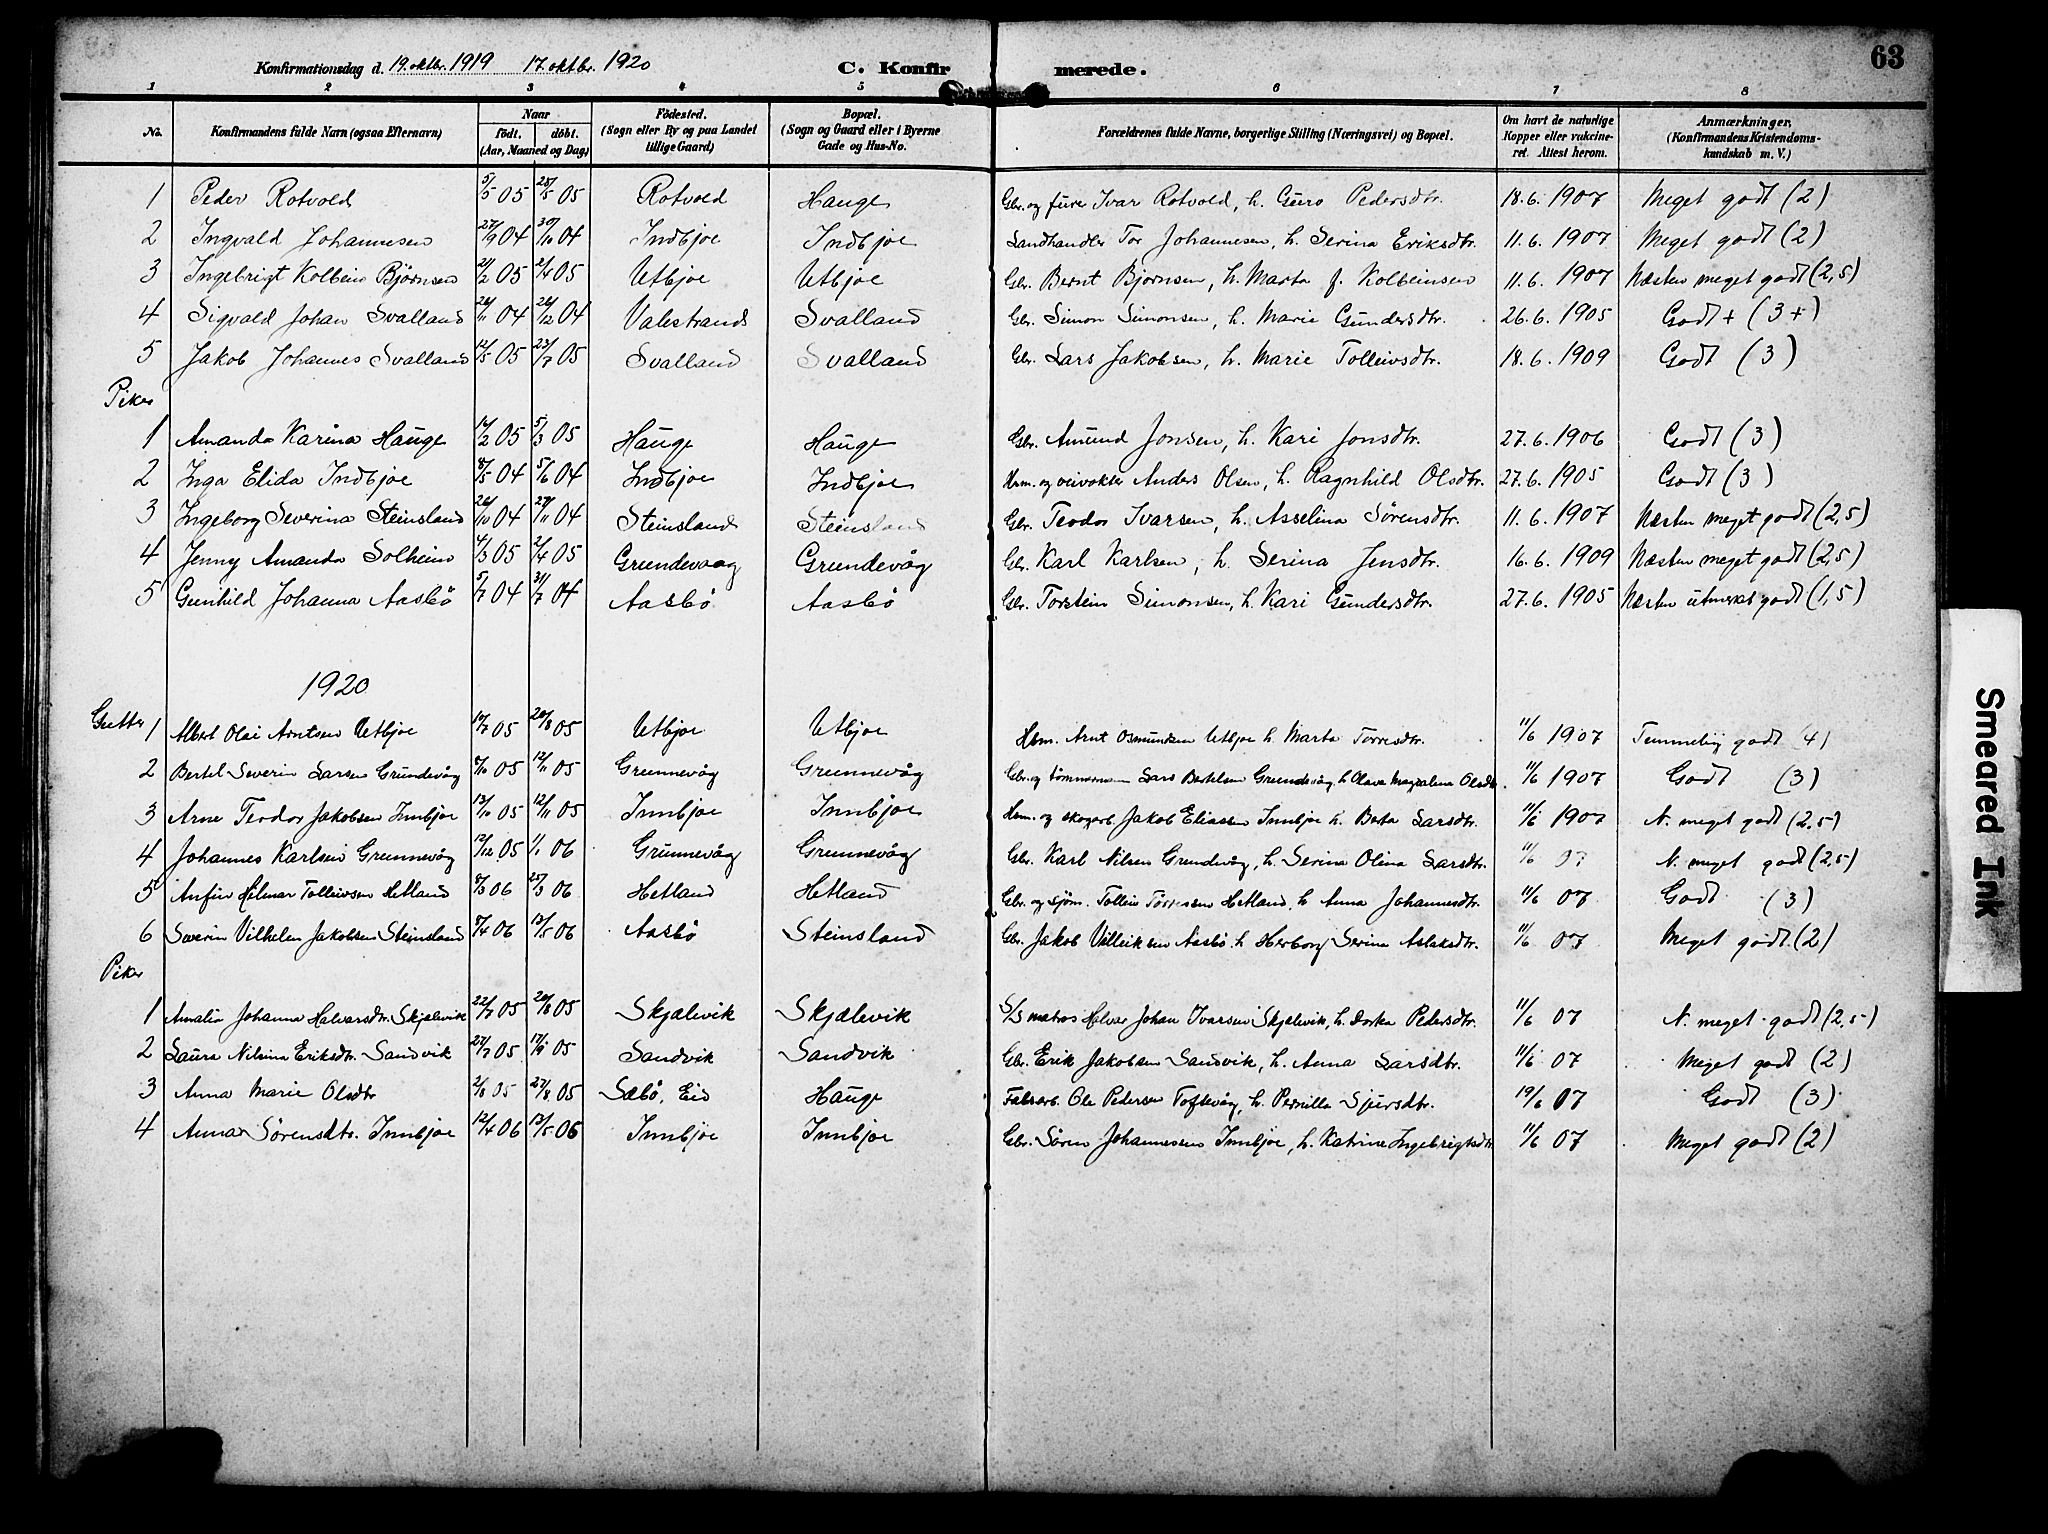 63
Konfirmationsdag d. 19. oktbr. 1919 17. oktbr. 1920 C. Konfirmerede.
1 2 3 4 5 6 7 8
No. Konfirmandens fulde Navn (ogsaa Efternavn) Naar født, døbt. (Aar, Maaned og Dag) Fødested. (Sogn eller By og paa Landet tillige Gaard) Bopæl. (Sogn og Gaard eller i Byerne Gade og Hus-No. Forældrenes fulde Navne, borgerlige Stilling (Næringsvei) og Bopæl. Om havt de naturlige Kopper eller vakcineret. Attest herom. Anmærkninger, (Konfirmandens Kristendomskundskab m. V.)
1 Peder Rotvold 5/5 05 28/5 05 Rotvold Hauge Gbr. og fører Ivar Rotvold, h. Guro Pedersdtr. 18.6. 1907 Meget godt (2)
2 Ingvald Johannesen 27/9 04 30/10 04 Indbjoe Indbjoe Landhandler Tor Johannesen, h. Serina Eriksdtr. 11.6. 1907 Meget godt (2)
3 Ingebrigt Kolbein Bjørnsen 21/2 05 2/4 05 Utbjoe Utbjoe Gbr. Bernt Bjørnsen, h. Marta f. Kolbeinsen 11.6. 1907 Næsten meget godt (2,5)
4 Sigvald Johan Svalland 26/11 04 26/12 04 Valestrand Svalland Gbr. Simon Simonsen, h. Marie Gundersdtr. 26.6. 1905 Godt + (3+)
5 Jakob Johannes Svalland 12/5 05 23/7 05 Svalland Svalland Gbr. Lars Jakobsen, h. Marie Tolleivsdtr. 18.6. 1909 Godt (3)
Piker
1 Amanda Karina Hauge 14/2 05 5/3 05 Hauge Hauge Gbr. Amund Jonsen, h. Kari Jonsdtr. 27.6. 1906 Godt (3)
2 Inga Elida Indbjoe 8/5 04 5/6 04 Indbjoe Indbjoe Hsm. og veivokter Anders Olsen, h. Ragnhild Olsdtr. 27.6. 1905 Godt (3)
3 Ingeborg Severina Steinsland 26/10 04 27/11 04 Steinsland Steinsland Gbr. Teodor Ivarsen, h. Asselina Sørensdtr. 11.6. 1907 Næsten meget godt (2,5)
4 Jenny Amanda Solheim 4/3 05 2/4 05 Grundevaag Grundevåg Gbr. Karl Karlsen, h. Serina Jensdtr. 16.6. 1909 Næsten meget godt (2,5)
5 Gunhild Johanna Aasbö 5/7 04 31/7 04 Aasbö Aasbö Gbr. Torstein Simonsen, h. Kari Gundersdtr. 27.6. 1905 Næsten utmerket godt (1,5)
1920
Gutter 1 Albert Olai Arntsen Utbjoe 14/7 05 20/8 05 Utbjoe Utbjoe Hsm. Arnt Osmundsen Utbjoe h. Marta Torresdtr. 11/6 1907 Temmelig godt (4)
2 Bertel Severin Larsen Grundevåg 8/10 05 12/11 05 Grunnevåg Grunnevåg Gbr. og tømmermann Lars Bertelsen Grundevåg, h. Olava Magdalena Olsdtr. 11/6 1907 Godt (3)
3 Arne Teodor Jakobsen Innbjoe 13/10 05 12/11 05 Innbjoe Innbjoe Hsm. og skogarb. Jakob Eliassen Innbjoe h. Berta Larsdtr. 11/6 1907 N. meget godt (2,5)
4 Johannes Karlsen Grunnevåg 12/12 05 1/1 06 Grunnevåg Grunnevåg Gbr. Karl Nilsen Grundevåg, h. Serina Olina Larsdtr. 11/6 07 N. meget godt (2,5)
5 Anfin Hilmar Tolleivsen Hetland 8/3 06 25/3 06 Hetland Hetland Gbr. og sjøm. Tolleiv Hetland, h. Anna Johannesdtr. 11/6 07 Godt (3)
6 Severin Vilhelm Jakobsen Steinsland 8/4 06 13/5 06 Aasbö Steinsland Gbr. Jakob Villeiksen Aasbö h. Herborg Serina Aslaksdtr. 11/6 07 Meget godt (2)
Piker
1 Amalia Johanna Halvarsdtr. Skjælevik 22/7 05 20/8 05 Skjælevik Skjælevik S/S matros Halvar Johan Ivarsen Skjælevik, h. Dorka Pedersdtr. 11/6 07 N. meget godt (2,5)
2 Laura Nilsina Eriksdtr. Sandvik 27/7 05 17/9 05 Sandvik Sandvik Gbr. Erik Jakobsen Sandvik, h. Anna Larsdtr. 11/6 07 Meget godt (2)
3 Anna Marie Olsdtr 2/8 05 27/8 05 Sæbö, Eid Hauge Fabrarb. Ole Pedersen Toftevåg, h. Pernilla Sjursdtr. 19/6 07 Godt (3)
4 Anna Sörensdtr. Innbjoe 12/4 06 13/5 06 Innbjoe Innbjoe Gbr. Sören Johannessen Innbjoe, h. Katrina Ingebrigtsdtr. 11/6 07 Meget godt (2)
Smeared Ink